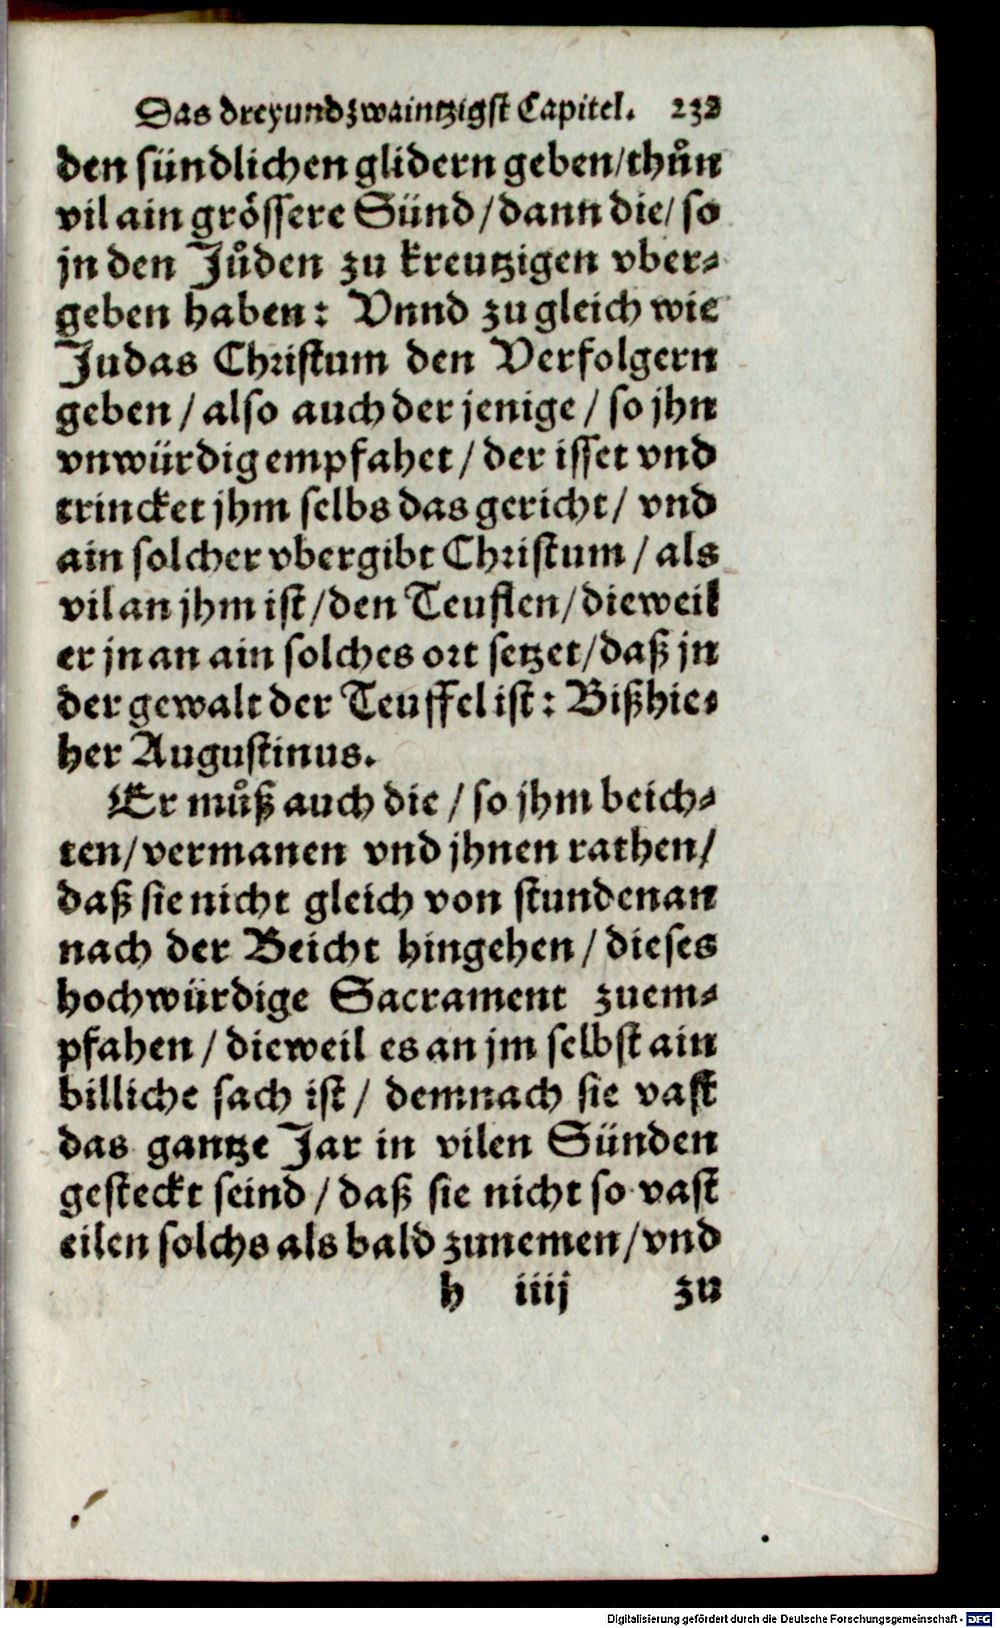 Das dreyundzwaintzigst Capitel. 232
den sündlichen glidern geben/thůn
vil ain grössere Sünd/dann die/so
jn den Jůden zu kreutzigen vber-
geben haben: Vnnd zu gleich wie
Judas Christum den Verfolgern
geben/also auch der jenige/so jhn
vnwürdig empfahet/der isset vnd
trincket jhm selbs das gericht/vnd
ain solcher vbergibt Christum/als
vil an jhm ist/den Teuflen/dieweil
er jn an ain solches ort setzet/daß jn
der gewalt der Teuffel ist: Bißhie-
her Augustinus.
Er můß auch die/so jhm beich-
ten/vermanen vnd jhnen rathen/
daß sie nicht gleich von stundenan
nach der Beicht hingehen/dieses
hochwürdige Sacrament zuem-
pfahen/dieweil es an jm selbst ain
billiche sach ist/demnach sie vast
das gantze Jar in vilen Sünden
gesteckt seind/daß sie nicht so vast
eilen solchs als bald zunemen/vnd
h iiij zu
Digitalisierung gefördert durch die Deutsche Forschungsgemeinschaft - DFG